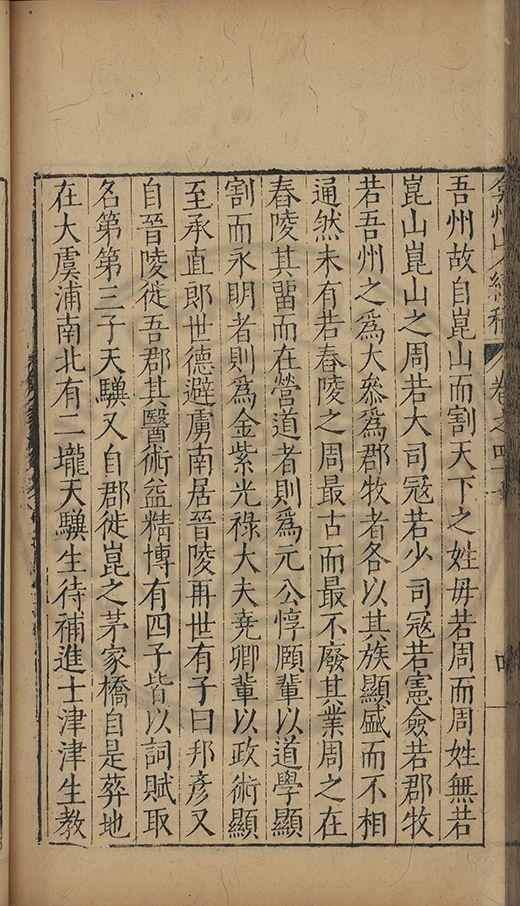 弇州山人續稿 卷之四
吾州故自崑山而割天下之姓毋若周而周姓無若
崑山崑山之周若大司冦若少司冦若憲僉若郡牧
若吾州之為大叅為郡牧者各以其族顯盛而不相
通然未有若舂陵之周最古而最不廢其業周之在
舂陵其習而在營道者則為元公惇頤輩以道學顯
割而永明者則為金紫光祿大夫堯卿輩以政術顯
至承直郎世德避虜南居晉陵再世有子曰邦彥又
自晉陵徙吾郡其醫術益精博有四子皆以詞賦取
名第第三子天驥又自郡徙崑之茅家橋自是葬地
在大虞浦南北有二壠天驥生待補進士津津生教